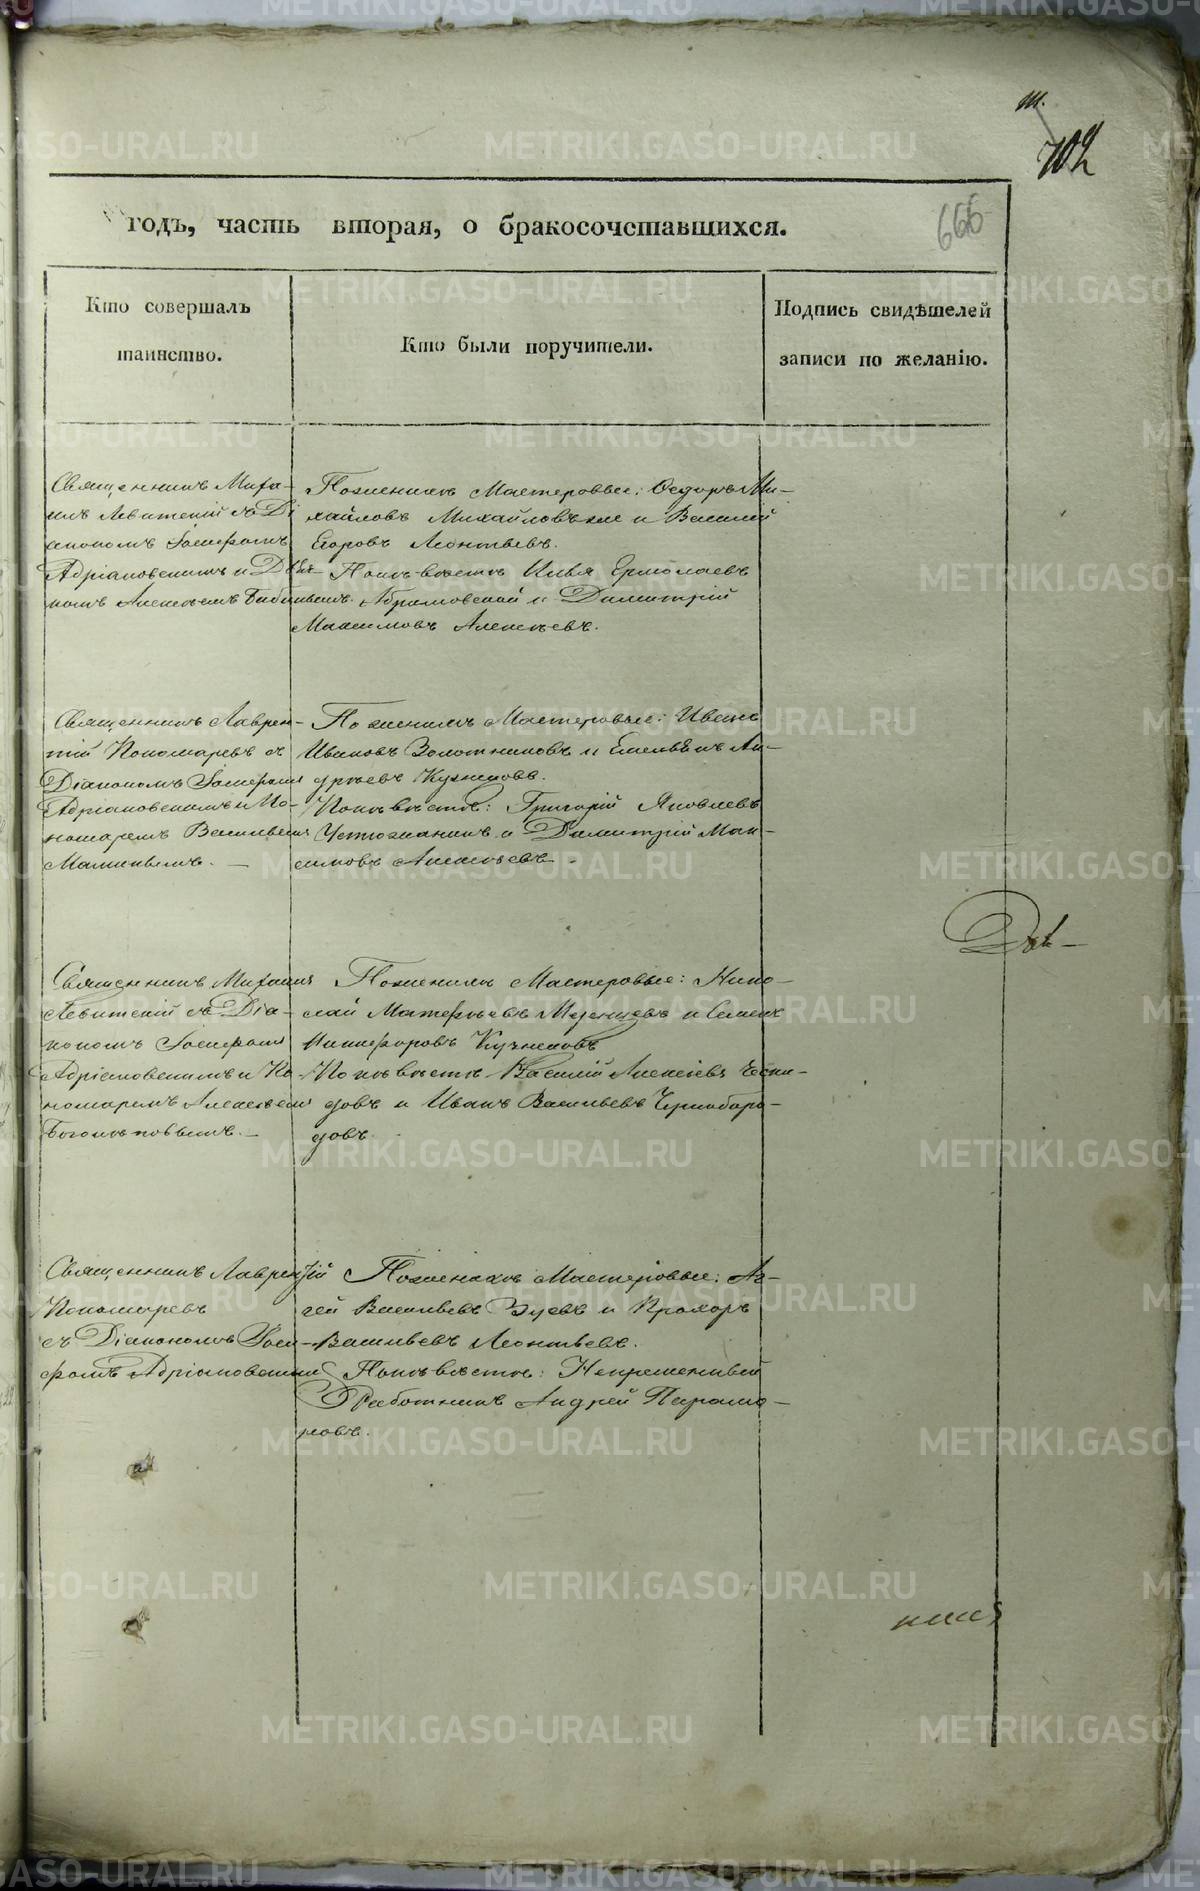 702
годъ, часть вторая, о бракосочетавшихся.
666
Кто совершалъ
таинство.
Кто были поручители.
Подпись свидѣтелей
записи по желанію.
Священникъ Миха-
илъ Левитскій съ Ді
акономъ Іосифомъ
Адріановскимъ и
комъ Алексѣемъ
По женихѣ Мастеровые: Ѳедоръ Ми-
хайловъ и Василій
Егоровъ Леонтьевъ.
По невѣстѣ Илья Ермолаевъ
Абрамовской и Димитрій
Максимовъ Алексѣевъ.
Священникъ Лаврен-
тій Пономаревъ съ
Діакономъ Іосифомъ
Адріановскимъ и По-
номаремъ Василіемъ
По женихѣ Мастеровые: Иванъ
Ивановъ Золотниковъ и Емельянъ Ан-
дреевъ Кузнецовъ.
По невѣстѣ: Григорій Яковлевъ
Устюжанинъ и Димитрій Мак-
симовъ Алексѣевъ.
Священникъ Михаилъ
Левитскій съ Діа-
кономъ Іосифомъ
Адріановскимъ и По-
номаремъ Алексѣемъ
По женихѣ Мастеровые: Нико-
лай Матѳеевъ и Семенъ
Никифоровъ Кузнецовъ
По невѣстѣ Василій Алексѣевъ
и Иванъ Васильевъ Чернобаро-
довъ.
Священникъ Лаврентій
Пономаревъ
съ Діакономъ Іоси-
фомъ Адріановскимъ
По женихѣ Мастеровые: Аг-
гей Васильевъ Зуевъ и Прохоръ
Васильевъ Леонтьевъ.
По невѣстѣ: Непремѣнный
Работникъ Андрей
METRIKI.GASO-URAL.RU